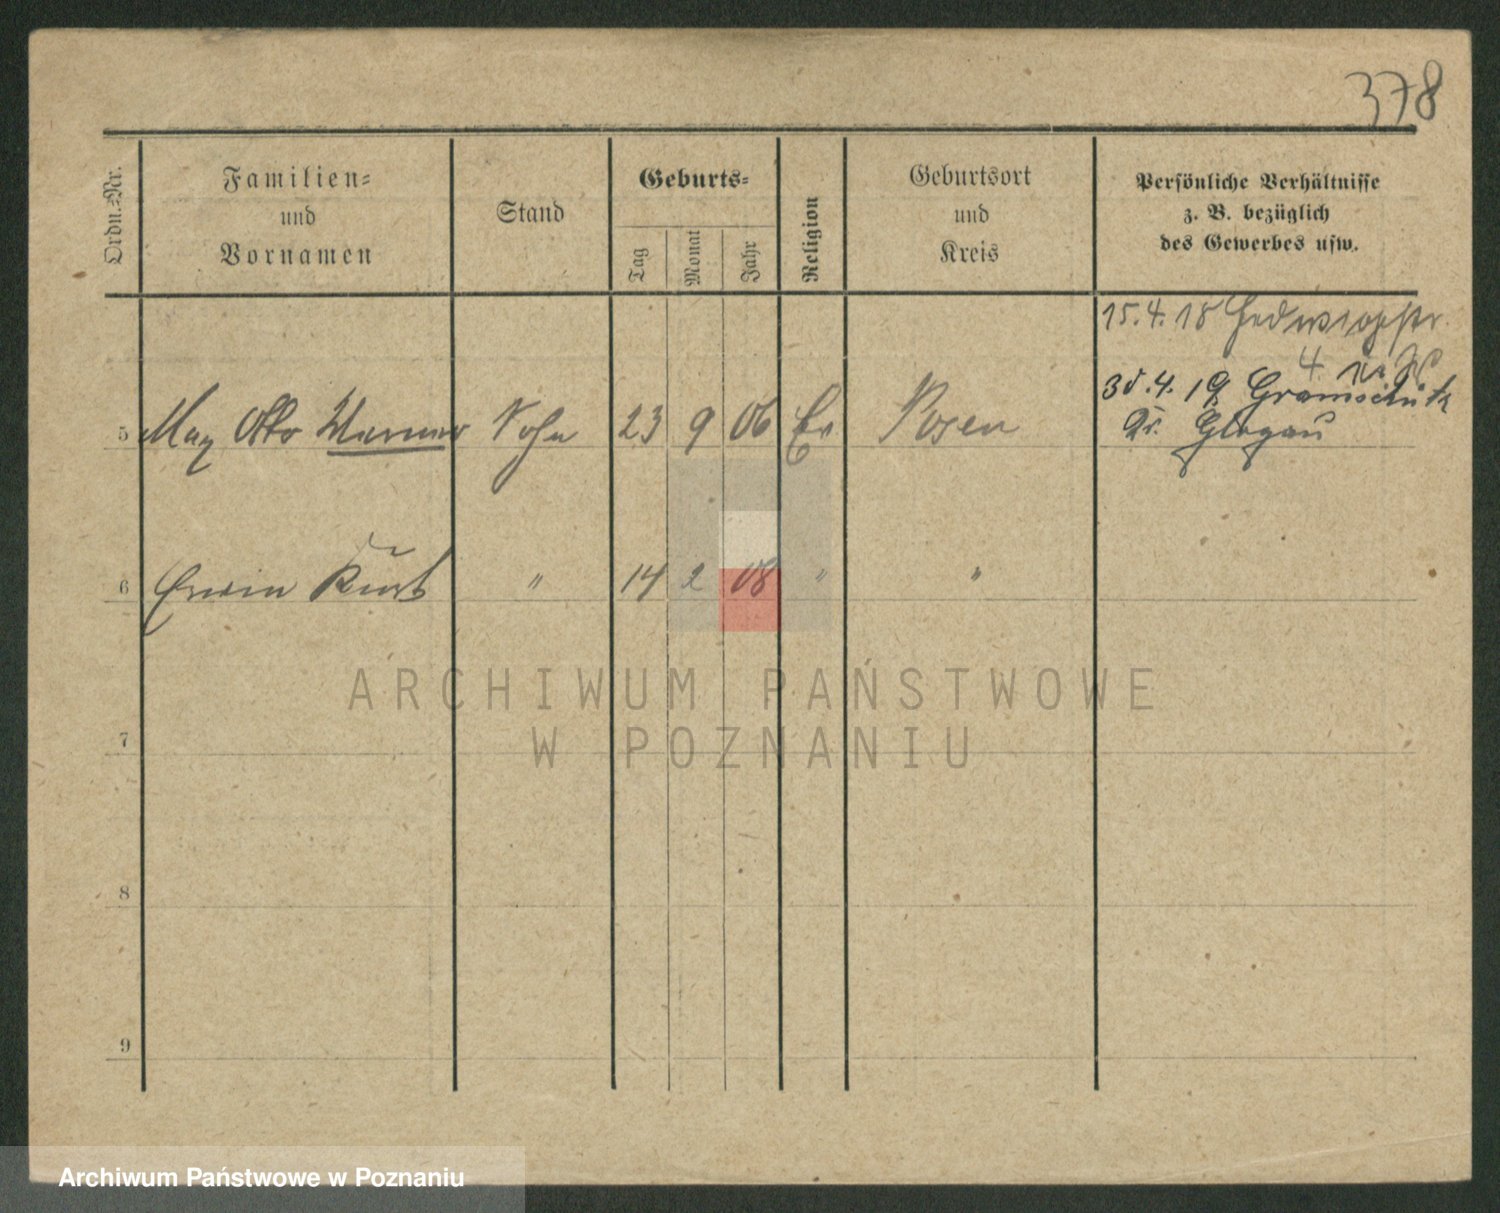 378
Ordn.-Nr.
Familien-
und
Vornamen
Stand
Geburts-
Tag
Monat
Jahr
Religion
Geburtsort
und
Kreis
Persönliche Verhältnisse
z. B. bezüglich
des Gewerbes usw.
15.4.18 Hedwigstr.
4
30.4.19 Gramschütz
Kr. Glogau
5 Max Otto Werner Sohn 23 9 06 Ev Posen
6 Erwin Kurt " 14 2 08 " "
7
8
9
ARCHIWUM PAŃSTWOWE
W POZNANIU
Archiwum Państwowe w Poznaniu